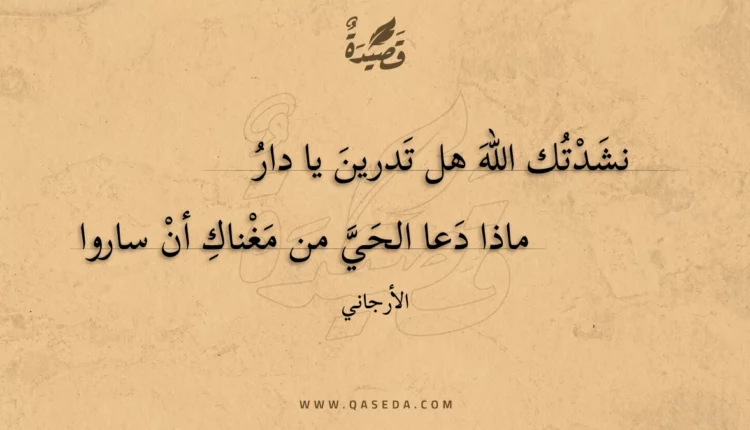 قَصِيدَةٌ
نشَدْتُك اللهَ هل تَدرينَ يا دارُ
ماذا دَعا الحَيَّ من مَغْناكِ أنْ ساروا
الأرجاني
WWW.QASEDA.COM